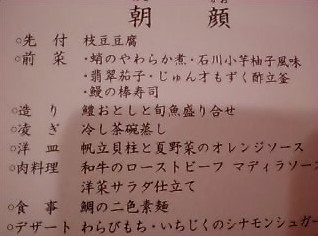 朝 顔
○先 付 枝豆豆腐
○前 菜 ・蛸のやわらか煮・石川小芋柚子風味
・翡翠茄子・じゅん才もずく酢立釜
・鰻の棒寿司
○造 り 鱧おとしと旬魚盛り合せ
○凌 ぎ 冷し茶碗蒸し
○洋 皿 帆立貝柱と夏野菜のオレンジソース
○肉料理 和牛のローストビーフ マディラソース
洋菜サラダ仕立て
○食 事 鯛の二色素麺
○デザート わらびもち・いちじくのシナモンシュガー